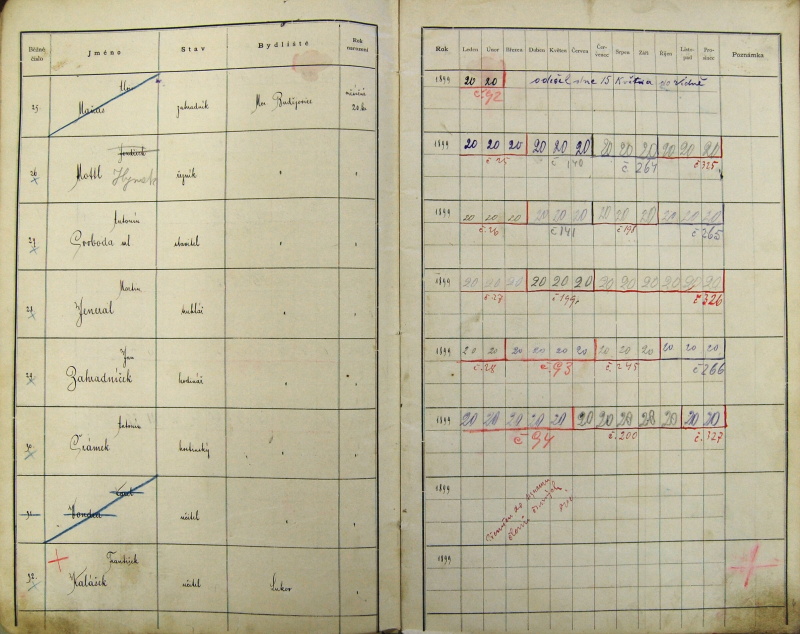 Běžné číslo Jméno Stav Bydliště Rok narození
25
zahradník Mor. Budějovice
26
Mottl Hynek
Antonín
27 Svoboda ml stavitel "
Martin
28 Jeneral truhlář "
Jan
29 Zahradníček hodinář "
Antonín
30 hostinský "
Karel
31 Vondra učitel "
František
32. Kalášek učitel Lukov
Rok Leden Únor Březen Duben Květen Červen Červenec Srpen Září Říjen Listopad Prosinec Poznámka
1899 20 20 odešel dne 15 Května
č. 92
1899 20 20 20 20 20 20 20 20 20 20 20 20
č 25 č 140 č 264 č 325
1899 20 20 20 20 20 20 20 20 20 20 20 20
č. 26 č 141 č 198 č 265
1899 20 20 20 20 20 20 20 20 20 20 20 20
č. 27 č 199. č 326
1899 20 20 20 20 20 20 20 20 20 20 20 20
č. 28 č. 93 č. 245 č 266
1899 20 20 20 20 20 20 20 20 20 20 20
č 94 č. 200 č. 327
1899
1899